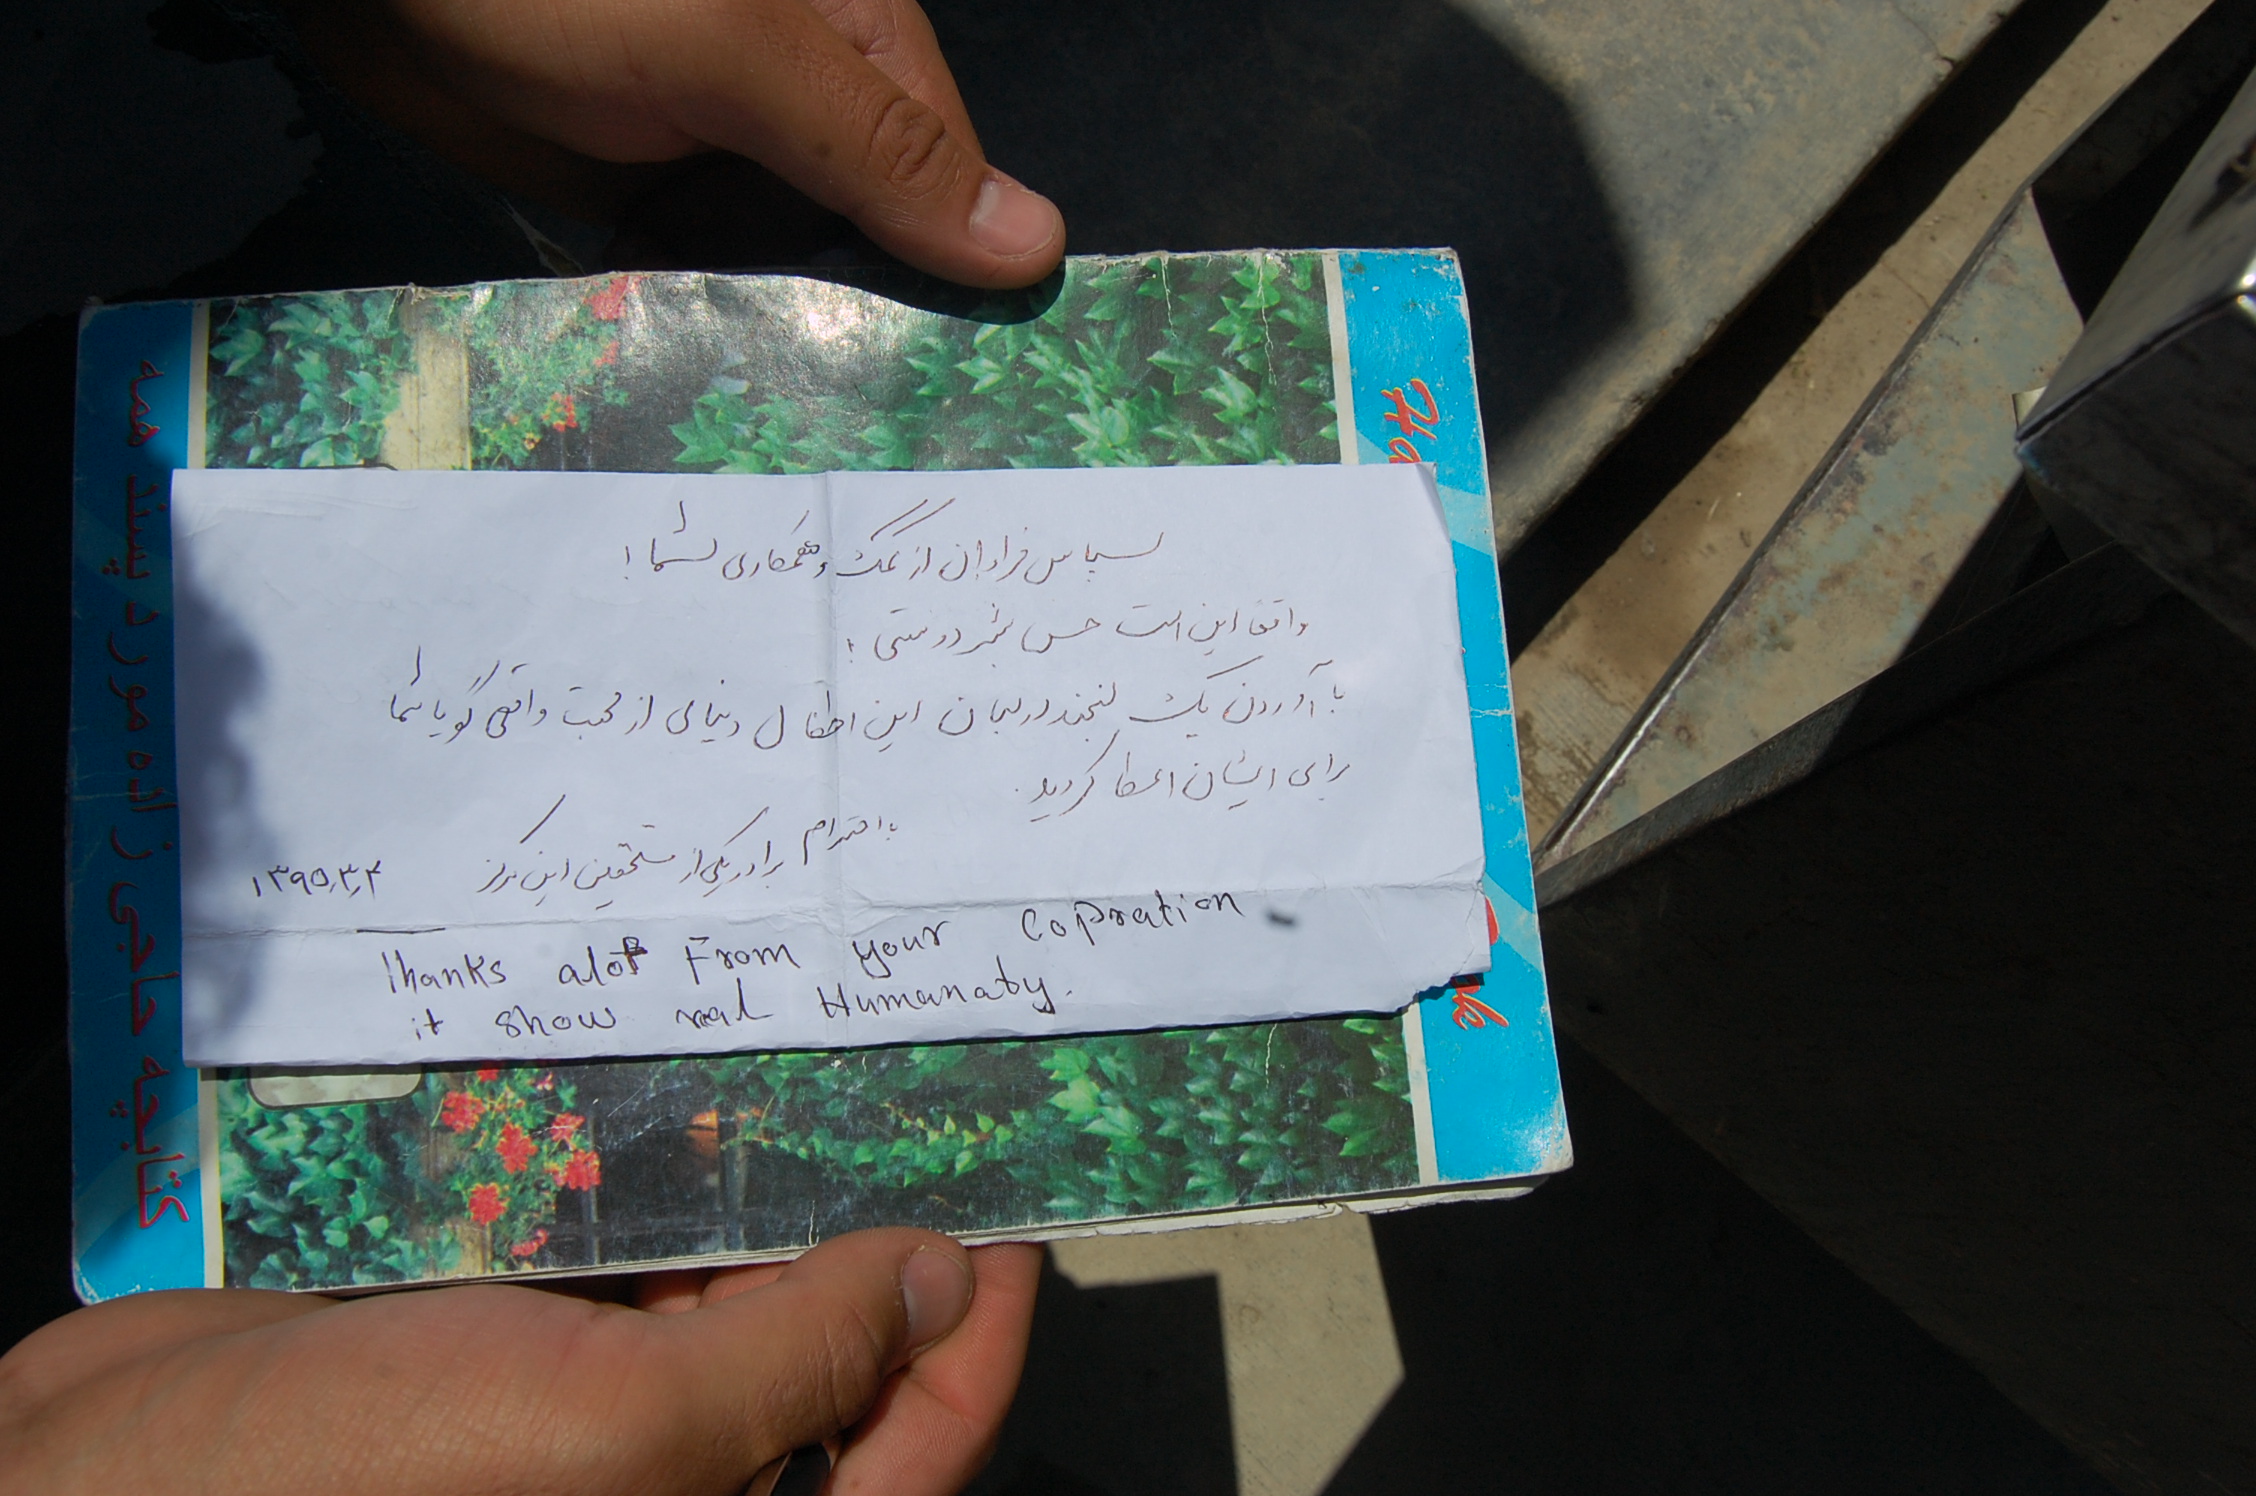 سپاس فراوان از کمک و همکاری شما !
واقعا این است حس بشر دوستی !
با آوردن یک لبخند در لبان این اطفال دنیای از محبت واقعی گویا شما
برای ایشان اعطا کردید.
با احترام برادر یکی از مستحقین این مرکز ۱۳۹۵٫۳٫۴
Thanks alot From your Copration
it show real Humanaty.
کتابچه حاجی زاده مورد پسند همه